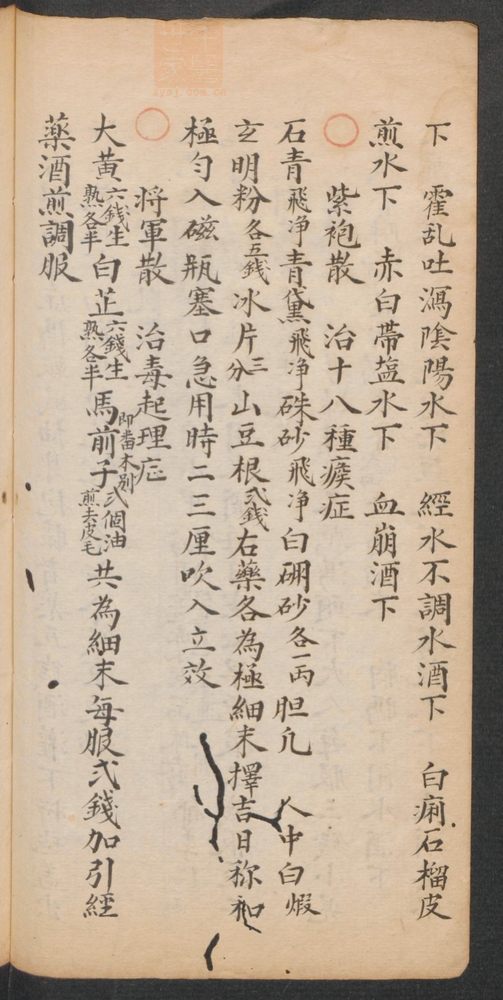 下　霍乱吐瀉陰陽水下　經水不調水酒下　白痢石榴皮
煎水下　赤白帶塩水下　血崩酒下
〇　紫袍散　治十八種瘊症
石青飛净青黛飛净硃砂飛净白硼砂各一両胆凡　人中白煅
玄明粉各五錢冰片三分山豆根弍錢右藥各為極細末擇吉日称和
極匀入磁瓶塞口急用時二三厘吹入立效
〇　将軍散　治毒起理疘
大黄六錢生熟各半白芷六錢生熟各半馬前子即畨木別弍個油煎去皮毛共為細末每服弍錢加引經
藥酒煎調服